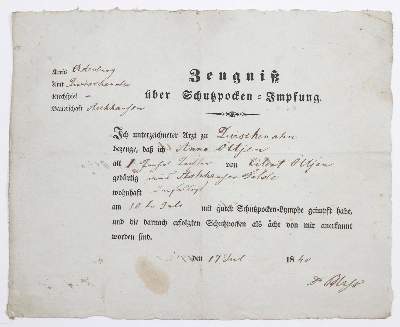 Zeugniß
über Schutzpocken-Impfung.
Kreis Oldenburg
Amt Zwischenahn
Kirchspiel "
Bauerschaft
Ich unterzeichneter Arzt zu Zwischenahn
bezeuge, daß ich Anna Oltjen
alt 1 Jahr Tochter von Oltjen
gebürtig aus
wohnhaft
am 10 Juli mit guter Schutzpocken-Lymphe geimpft habe,
und die darnach erfolgten Schutzpocken als ächt von mir anerkannt
worden sind.
den 17 Jul 1840